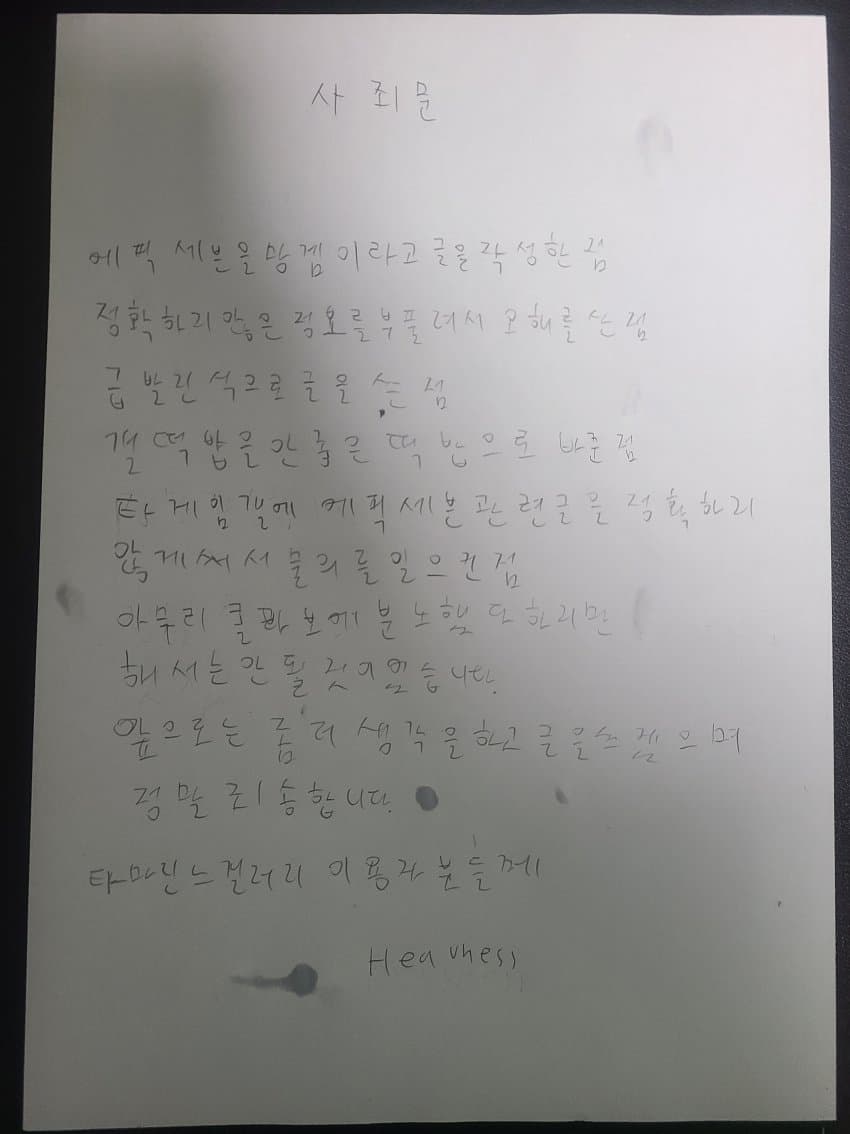 사 죄 문
에픽 세븐을 망겜이라고 글을 작성한 점
정확하지 않은 정보를 부풀려서 오해를 산 점
급발진 식으로 글을 쓴 점
갤 떡밥을 안 좋은 떡밥으로 바꾼 점
타 게임갤에 에픽세븐관련글을 정확하지
않게써서 물의를 일으킨점
아무리 에 분노했다 하지만
해서는 안 될 것이었습니다.
앞으로는 좀 더 생각을하고 글을쓰겠으며
정말 죄송합니다.
타마린느갤러리 이용자분들께